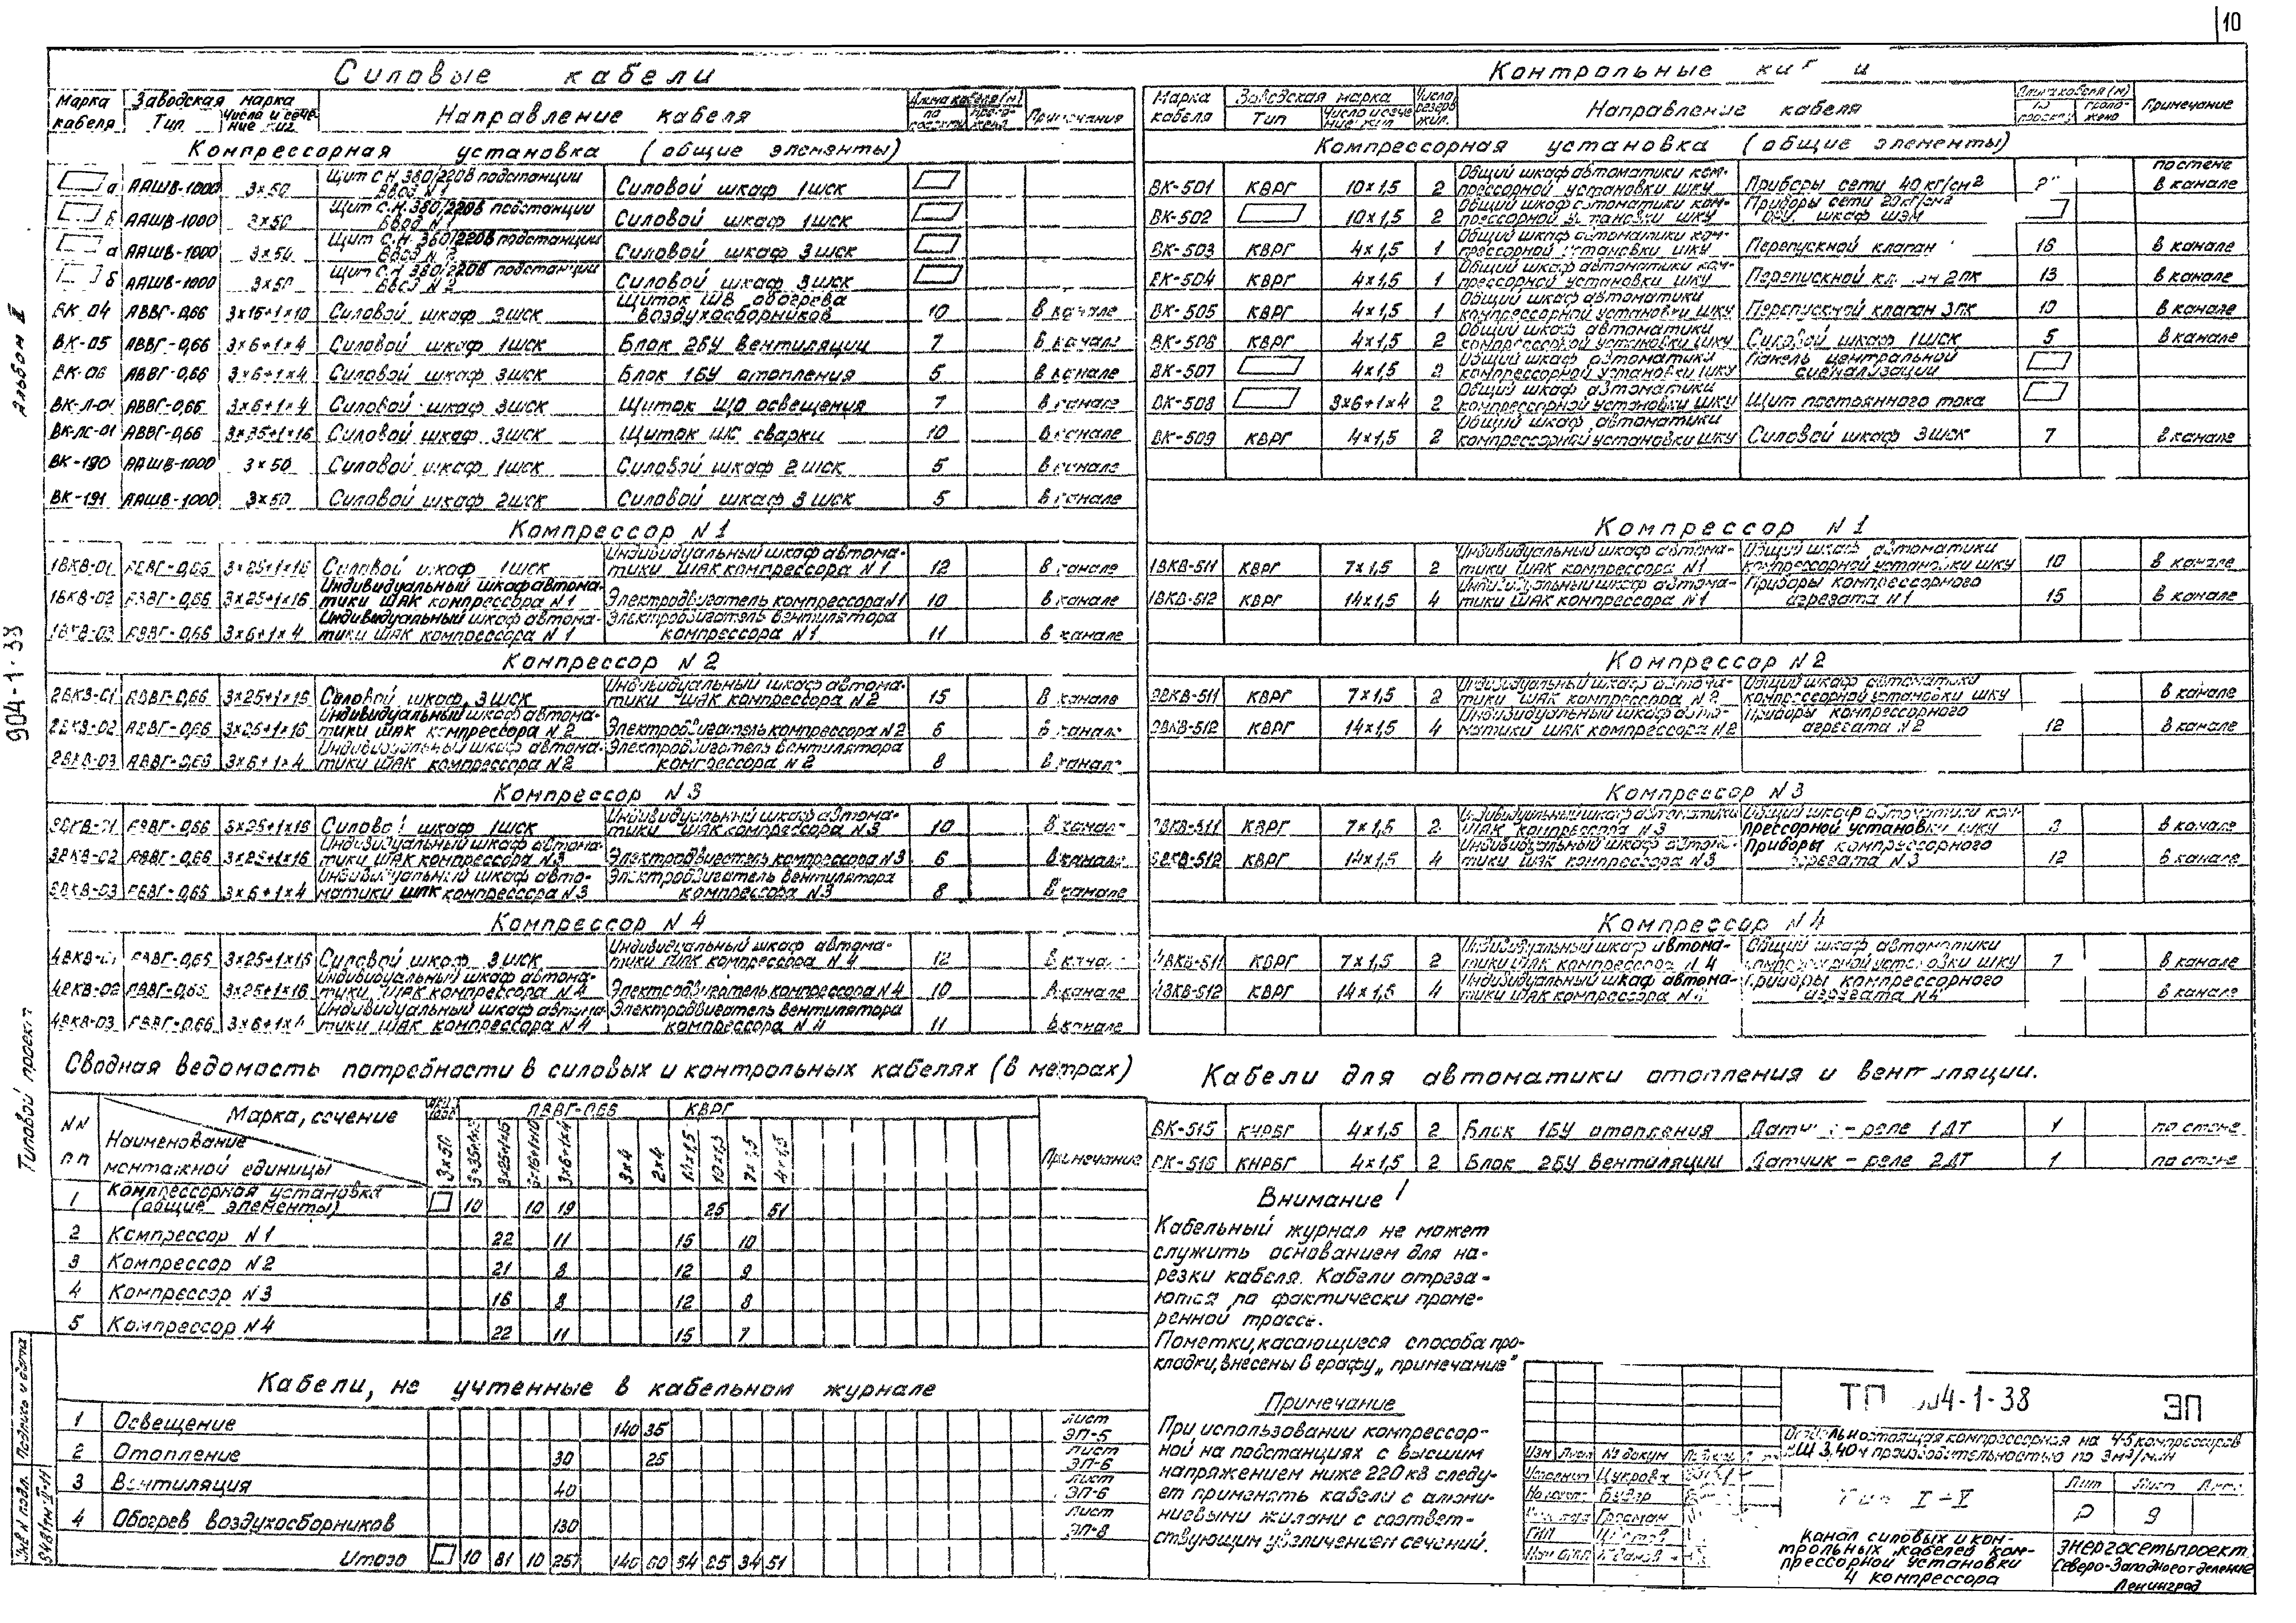 10
Силовые кабели
Марка кабеля | Заводская марка | Направление кабеля | Длина кабеля (м) | Примечания
Тип | Число и сечение жил | по проекту | проложено
Компрессорная установка (общие элементы)
а ААШВ-1000 3×50 Щит С.Н. 380/220В подстанции Ввод N 1 Силовой шкаф 1ШСК
б ААШВ-1000 3×50 Щит С.Н. 380/220В подстанции Ввод N Силовой шкаф 1ШСК
а ААШВ-1000 3×50 Щит С.Н. 380/220В подстанции Ввод N 2 Силовой шкаф 3ШСК
б ААШВ-1000 3×50 Щит С.Н. 380/220В подстанции Ввод N 2 Силовой шкаф 3ШСК
ВК-04 АВВГ-0,66 3×16+1×10 Силовой шкаф 2ШСК Щиток ШВ обогрева воздухосборников 10 в канале
ВК-05 АВВГ-0,66 3×6+1×4 Силовой шкаф 1ШСК Блок 2БУ вентиляции 7 в канале
ВК-06 АВВГ-0,66 3×6+1×4 Силовой шкаф 3ШСК Блок 1БУ отопления 5 в канале
ВК-Л-01 АВВГ-0,66 3×6+1×4 Силовой шкаф 3ШСК Щиток ЩО освещения 7 в канале
ВК-ЛС-01 АВВГ-0,66 3×35+1×16 Силовой шкаф 3ШСК Щиток ЩС сварки 10 в канале
ВК-190 ААШВ-1000 3×50 Силовой шкаф 1ШСК Силовой шкаф 2ШСК 5 в канале
ВК-191 ААШВ-1000 3×50 Силовой шкаф 2ШСК Силовой шкаф 3ШСК 5 в канале
Компрессор N1
1ВКВ-01 АВВГ-0,66 3×25+1×16 Силовой шкаф 1ШСК Индивидуальный шкаф автоматики ШАК компрессора N1 12 в канале
1ВКВ-02 АВВГ-0,66 3×25+1×16 Индивидуальный шкаф автоматики ШАК компрессора N1 Электродвигатель компрессора N1 10 в канале
1ВКВ-03 АВВГ-0,66 3×6+1×4 Индивидуальный шкаф автоматики ШАК компрессора N1 Электродвигатель вентилятора компрессора N1 11 в канале
Компрессор N2
2ВКВ-01 АВВГ-0,66 3×25+1×16 Силовой шкаф, 3ШСК Индивидуальный шкаф автоматики ШАК компрессора N2 15 в канале
2ВКВ-02 АВВГ-0,66 3×25+1×16 Индивидуальный шкаф автоматики ШАК компрессора N2 Электродвигатель компрессора N2 6 в канале
2ВКВ-03 АВВГ-0,66 3×6+1×4 Индивидуальный шкаф автоматики ШАК компрессора N2 Электродвигатель вентилятора компрессора N2 8 в канале
Компрессор N3
3ВКВ-01 АВВГ-0,66 3×25+1×16 Силовой шкаф 1ШСК Индивидуальный шкаф автоматики ШАК компрессора N3 10 в канале
3ВКВ-02 АВВГ-0,66 3×25+1×16 Индивидуальный шкаф автоматики ШАК компрессора N3 Электродвигатель компрессора N3 6 в канале
3ВКВ-03 АВВГ-0,66 3×6+1×4 Индивидуальный шкаф автоматики ШАК компрессора N3 Электродвигатель вентилятора компрессора N3 8 в канале
Компрессор N4
4ВКВ-01 АВВГ-0,66 3×25+1×16 Силовой шкаф 3ШСК Индивидуальный шкаф автоматики ШАК компрессора N4 12 в канале
4ВКВ-02 АВВГ-0,66 3×25+1×16 Индивидуальный шкаф автоматики ШАК компрессора N4 Электродвигатель компрессора N4 10 в канале
4ВКВ-03 АВВГ-0,66 3×6+1×4 Индивидуальный шкаф автоматики ШАК компрессора N4 Электродвигатель вентилятора компрессора N4 11 в канале
Контрольные
Марка кабеля | Заводская марка | Число резерв. жил. | Направление кабеля | Длина кабеля (м) | Примечание
Тип | Число и сечение жил | по проекту | проложено
Компрессорная установка (общие элементы)
ВК-501 КВРГ 10×1,5 2 Общий шкаф автоматики компрессорной установки ШКУ Приборы сети 40 кг/см2 по стене в канале
ВК-502 10×1,5 2 Общий шкаф автоматики компрессорной установки ШКУ Приборы сети 20 кг/см2 ОРУ, шкаф ШЭМ
ВК-503 КВРГ 4×1,5 1 Общий шкаф автоматики компрессорной установки ШКУ Перепускной клапан 16 в канале
ВК-504 КВРГ 4×1,5 1 Общий шкаф автоматики компрессорной установки ШКУ Перепускной 2ПК 13 в канале
ВК-505 КВРГ 4×1,5 1 Общий шкаф автоматики компрессорной установки ШКУ Перепускной клапан 3ПК 10 в канале
ВК-506 КВРГ 4×1,5 2 Общий шкаф автоматики компрессорной установки ШКУ Силовой шкаф 1ШСК 5 в канале
ВК-507 4×1,5 2 Общий шкаф автоматики компрессорной установки ШКУ Панель центральной сигнализации
ВК-508 3×6+1×4 2 Общий шкаф автоматики компрессорной установки ШКУ Щит постоянного тока
ВК-509 КВРГ 4×1,5 2 Общий шкаф автоматики компрессорной установки ШКУ Силовой шкаф 3ШСК 7 в канале
Компрессор N1
1ВКВ-511 КВРГ 7×1,5 2 Индивидуальный шкаф автоматики ШАК компрессора N1 Общий шкаф автоматики компрессорной установки ШКУ 10 в канале
1ВКВ-512 КВРГ 14×1,5 4 Индивидуальный шкаф автоматики ШАК компрессора N1 Приборы компрессорного агрегата N1 15 в канале
Компрессор N2
2ВКВ-511 КВРГ 7×1,5 2 Индивидуальный шкаф автоматики ШАК компрессора N2 Общий шкаф автоматики компрессорной установки ШКУ в канале
2ВКВ-512 КВРГ 14×1,5 4 Индивидуальный шкаф автоматики ШАК компрессора N2 Приборы компрессорного агрегата N2 12 в канале
Компрессор N3
3ВКВ-511 КВРГ 7×1,5 2 Индивидуальный шкаф автоматики ШАК компрессора N3 Общий шкаф автоматики компрессорной установки ШКУ 8 в канале
3ВКВ-512 КВРГ 14×1,5 4 Индивидуальный шкаф автоматики ШАК компрессора N3 Приборы компрессорного агрегата N3 12 в канале
Компрессор N4
4ВКВ-511 КВРГ 7×1,5 2 Индивидуальный шкаф автоматики ШАК компрессора N4 Общий шкаф автоматики компрессорной установки ШКУ 7 в канале
4ВКВ-512 КВРГ 14×1,5 4 Индивидуальный шкаф автоматики ШАК компрессора Приборы компрессорного агрегата N4 в канале
Сводная ведомость потребности в силовых и контрольных кабелях (в метрах)
NN пп | Марка, сечение | АВВГ-0,66 | КВРГ | Примечание
Наименование монтажной единицы | 3×50 | 3×35+1×16 | 3×25+1×16 | 3×16+1×10 | 3×6+1×4 | 3×4 | 2×4 | 14×1,5 | 10×1,5 | 7×1,5 | 4×1,5
1 Компрессорная установка (общие элементы) 10 10 19 25 51
2 Компрессор N1 22 11 15 10
3 Компрессор N2 21 8 12 9
4 Компрессор N3 16 8 12 8
5 Компрессор N4 22 11 15 7
Кабели, не учтенные в кабельном журнале
1 Освещение 140 35 лист ЭП-5
2 Отопление 30 25 лист ЭП-6
3 Вентиляция 40 лист ЭП-6
4 Обогрев воздухосборников 130 лист ЭП-8
Итого 10 81 10 257 140 60 54 25 34 51
Кабели для автоматики отопления и вентиляции.
ВК-515 КНРБГ 4×1,5 2 Блок 1БУ отопления Датчик - реле 1ДТ 1 по стене
ВК-516 КНРБГ 4×1,5 2 Блок 2БУ вентиляции Датчик - реле 2ДТ 1 по стене
Внимание!
Кабельный журнал не может
служить основанием для на-
резки кабеля. Кабели отреза-
ются по фактически проме-
ренной трассе.
Пометки, касающиеся способа про-
кладки, внесены в графу „примечание"
Примечание
При использовании компрессор-
ной на подстанциях с высшим
напряжением ниже 220 кв следу-
ет применять кабели с алюми-
ниевыми жилами с соответ-
ствующим увеличением сечений.
ТП 904-1-38 ЭП
Отдельностоящая компрессорная на 4-5 компрессоров
ВШ 3,40м производительностью по 3м³/мин
Изм Лист N докум
Цукрова
Гросман
ГИП
Тип I-V
Лит Лист
Р 9
Канал силовых и кон-
трольных кабелей ком-
прессорной установки
4 компрессора
Энергосетьпроект
Северо-Западное отделение
Ленинград
Альбом II
904-1-38
Типовой проект
Инв N подл. Подпись и дата